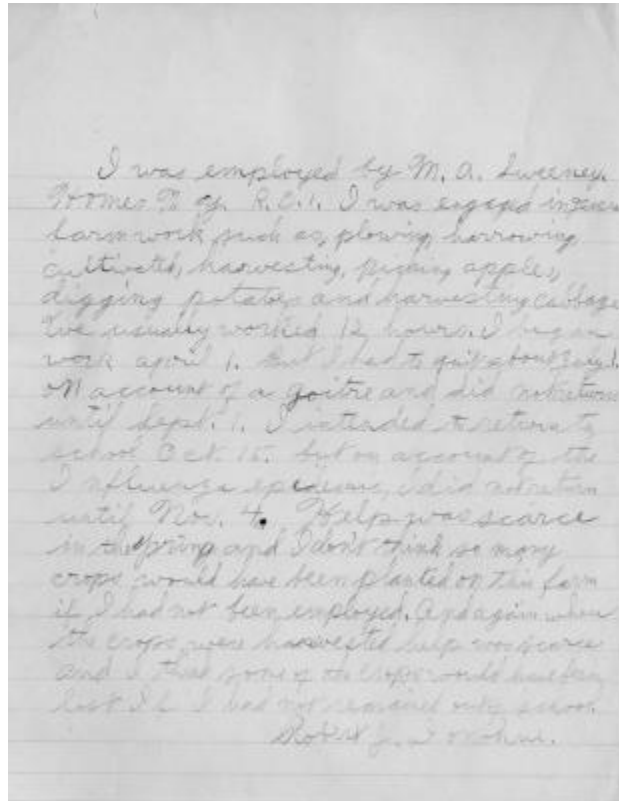 I was employed by M. A. Sweeney.
R.C.1. I was engaged in
farmwork such as, plowing, harrowing,
cultivated, harvesting, picking apples,
digging potatoes and harvesting cabbage
We usually worked 12 hours. I began
work april 1. But I had to quit about 1.
on account of a goitre and did not return
until Sept. 1. I intended to return to
school Oct. 15. but on account of the
Influenza epidemic, I did not return
until Nov. 4. Help was scarce
in the spring and I don't think so many
crops would have been planted on this farm
if I had not been employed. And again when
the crops were harvested help was scarce
and I think some of the crops would have been
lost if I had not remained out of school.
Robert J. Donohue.